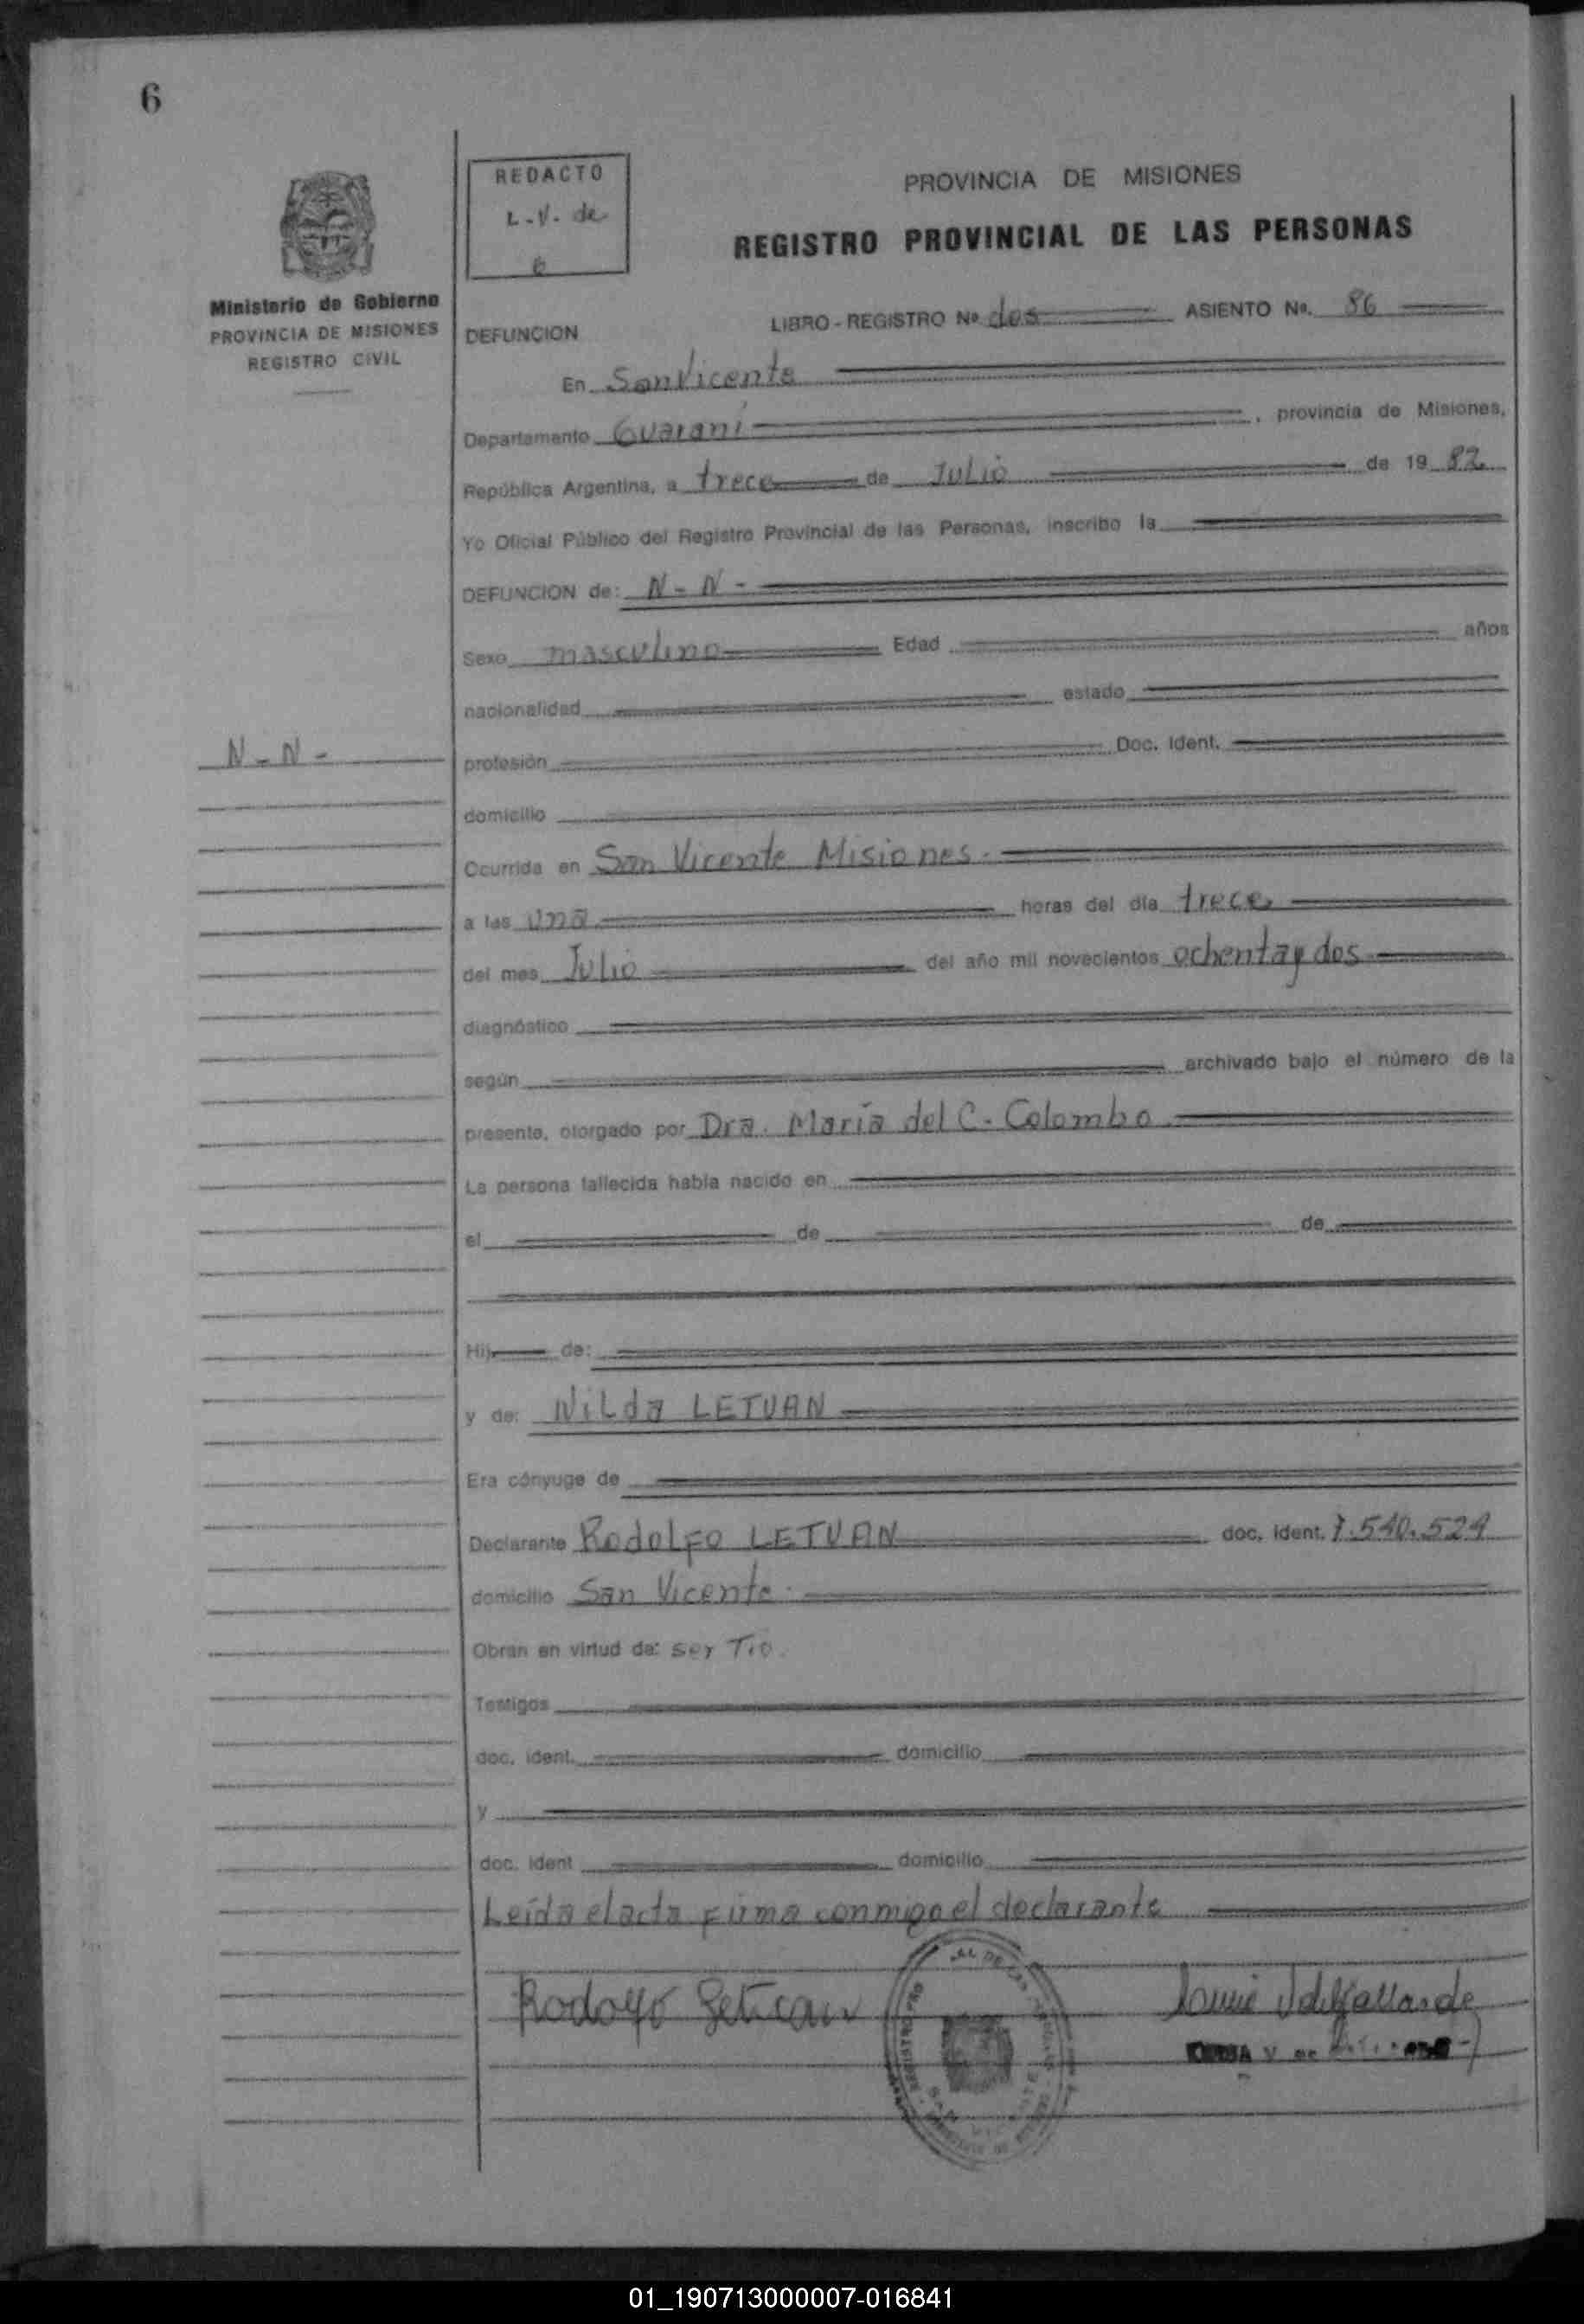 6
REDACTO
L.V. de
6
PROVINCIA DE MISIONES
REGISTRO PROVINCIAL DE LAS PERSONAS
Ministerio de Gobierno
PROVINCIA DE MISIONES
REGISTRO CIVIL
LIBRO - REGISTRO Nº dos ASIENTO Nº. 86
DEFUNCION
En San Vicente
Departamento Guaraní, provincia de Misiones,
República Argentina, a trece de Julio de 19 82
Yo Oficial Público del Registro Provincial de las Personas, inscribo la
DEFUNCION de: N - N -
Sexo masculino Edad años
nacionalidad estado
N - N -
profesión Doc. Ident.
domicilio
Ocurrida en San Vicente Misiones.
a las una horas del día trece
del mes Julio del año mil novecientos ochenta y dos
diagnóstico
según archivado bajo el número de la
presente, otorgado por Dra. María del C. Colombo
La persona fallecida había nacido en
el de de
Hij de:
y de: Nilda LETUAN
Era cónyuge de
Declarante Rodolfo LETUAN doc. ident. 7.540.529
domicilio San Vicente.
Obran en virtud de: ser Tio.
Testigos
doc. ident. domicilio
y
doc. ident domicilio
Leída el acta firma conmigo el declarante
Rodolfo Letuan
01_190713000007-016841